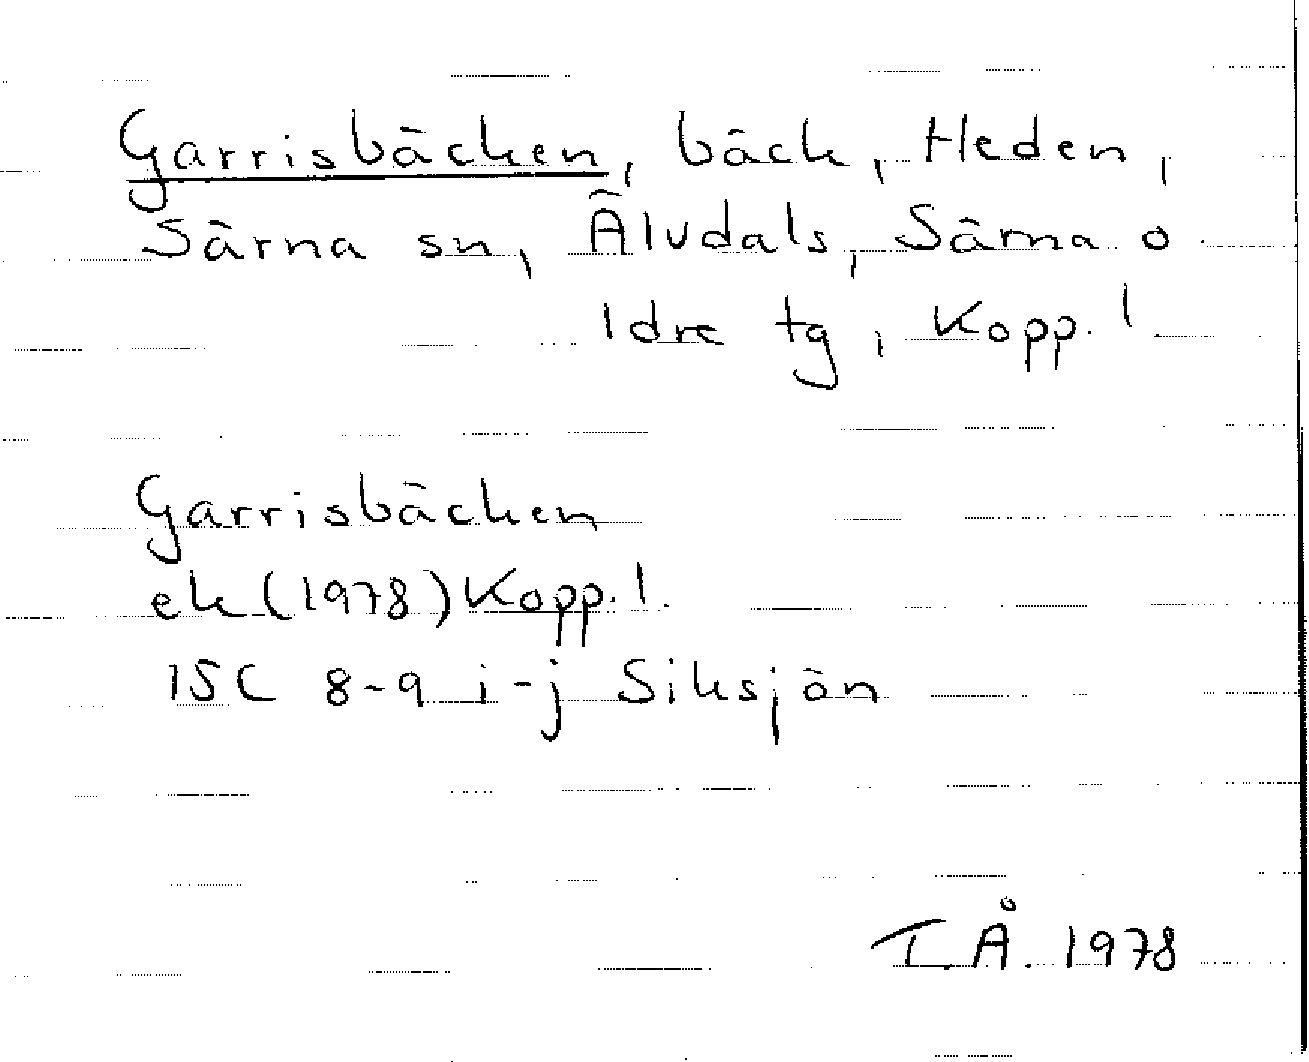 Garrisbäcken, bäck, Heden,
Särna sn, Älvdals, Särna o
Idre tg, Kopp. l
Garrisbäcken
ek (1978) Kopp. l.
15C 8-9 i-j Siksjön
T.Å. 1978